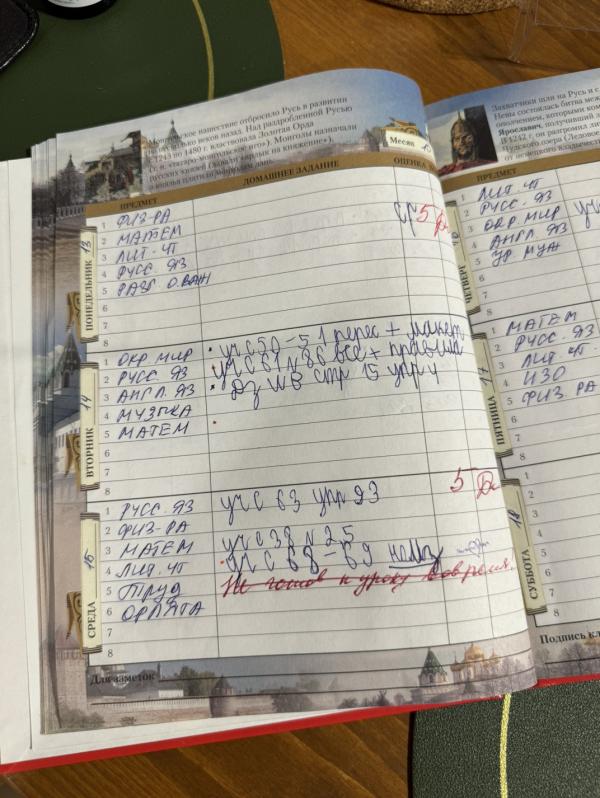 Монгольское нашествие отбросило Русь в развитии
на несколько веков назад. Над раздробленной Русью
(с 1243 по 1480 г.) властвовала Золотая Орда
(т. е. «монголо-
русских князей
а взамен платили монголам дань.
Месяц
ПРЕДМЕТ
ДОМАШНЕЕ ЗАДАНИЕ
ОЦЕНКА
ПОНЕДЕЛЬНИК 13
1 ФИЗ-РА
2 МАТЕМ
3 ЛИТ. ЧТ
4 РУСС. ЯЗ
5 РАЗГ. О ВАЖ
6
7
8
ср 5
ВТОРНИК 14
1 ОКР. МИР • уч с 50-51 перес + макет
2 РУСС. ЯЗ уч с 61 N 86 все + правила
3 АНГЛ. ЯЗ • Дз WB стр 15 упр 4
4 МУЗЫКА
5 МАТЕМ
6
7
8
СРЕДА 15
1 РУСС. ЯЗ уч с 63 упр 93 5
2 ФИЗ-РА
3 МАТЕМ уч с 38 N 2,5
4 ЛИТ. ЧТ • уч с 68-69 наиз
5 ТРУД Не готов к уроку вовремя.
6 ОРЛЯТА
7
8
Для заметок
Захватчики шли на Русь и с
Невы состоялась битва меж
ополчением, которым кома
Ярославич, получивший з
В 1242 г. он разгромил
Чудского озера (Ледовое
от немецкого владычеств
ПРЕДМЕТ
ЧЕТВЕРГ
1 ЛИТ. ЧТ
2 РУСС. ЯЗ
3 ОКР. МИР уч
4 АНГЛ. ЯЗ
5 УР. МУЖ
6
7
8
ПЯТНИЦА 17
1 МАТЕМ
2 РУСС. ЯЗ
3 ЛИТ. ЧТ
4 ИЗО
5 ФИЗ. РА
6
7
8
СУББОТА 18
1
2
3
4
5
6
7
8
Подпись кл